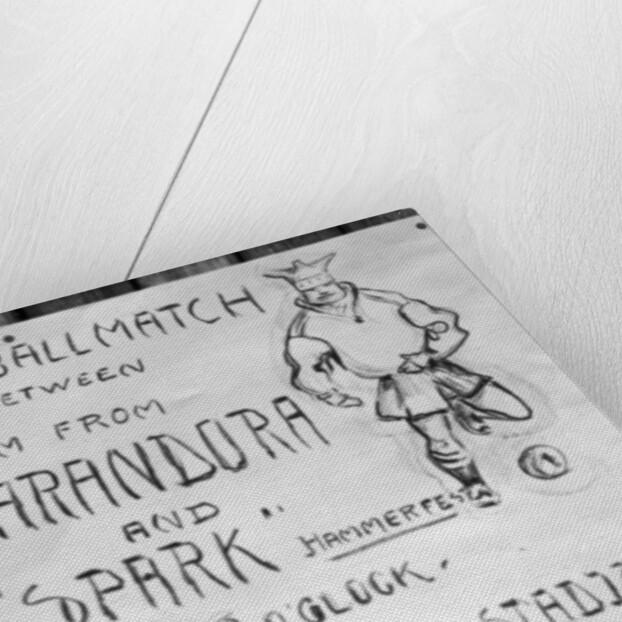 BALLMATCH
ETWEEN
M FROM
ARANDORA
AND
"SPARK" HAMMERFEST
O'GLOCK. STADI